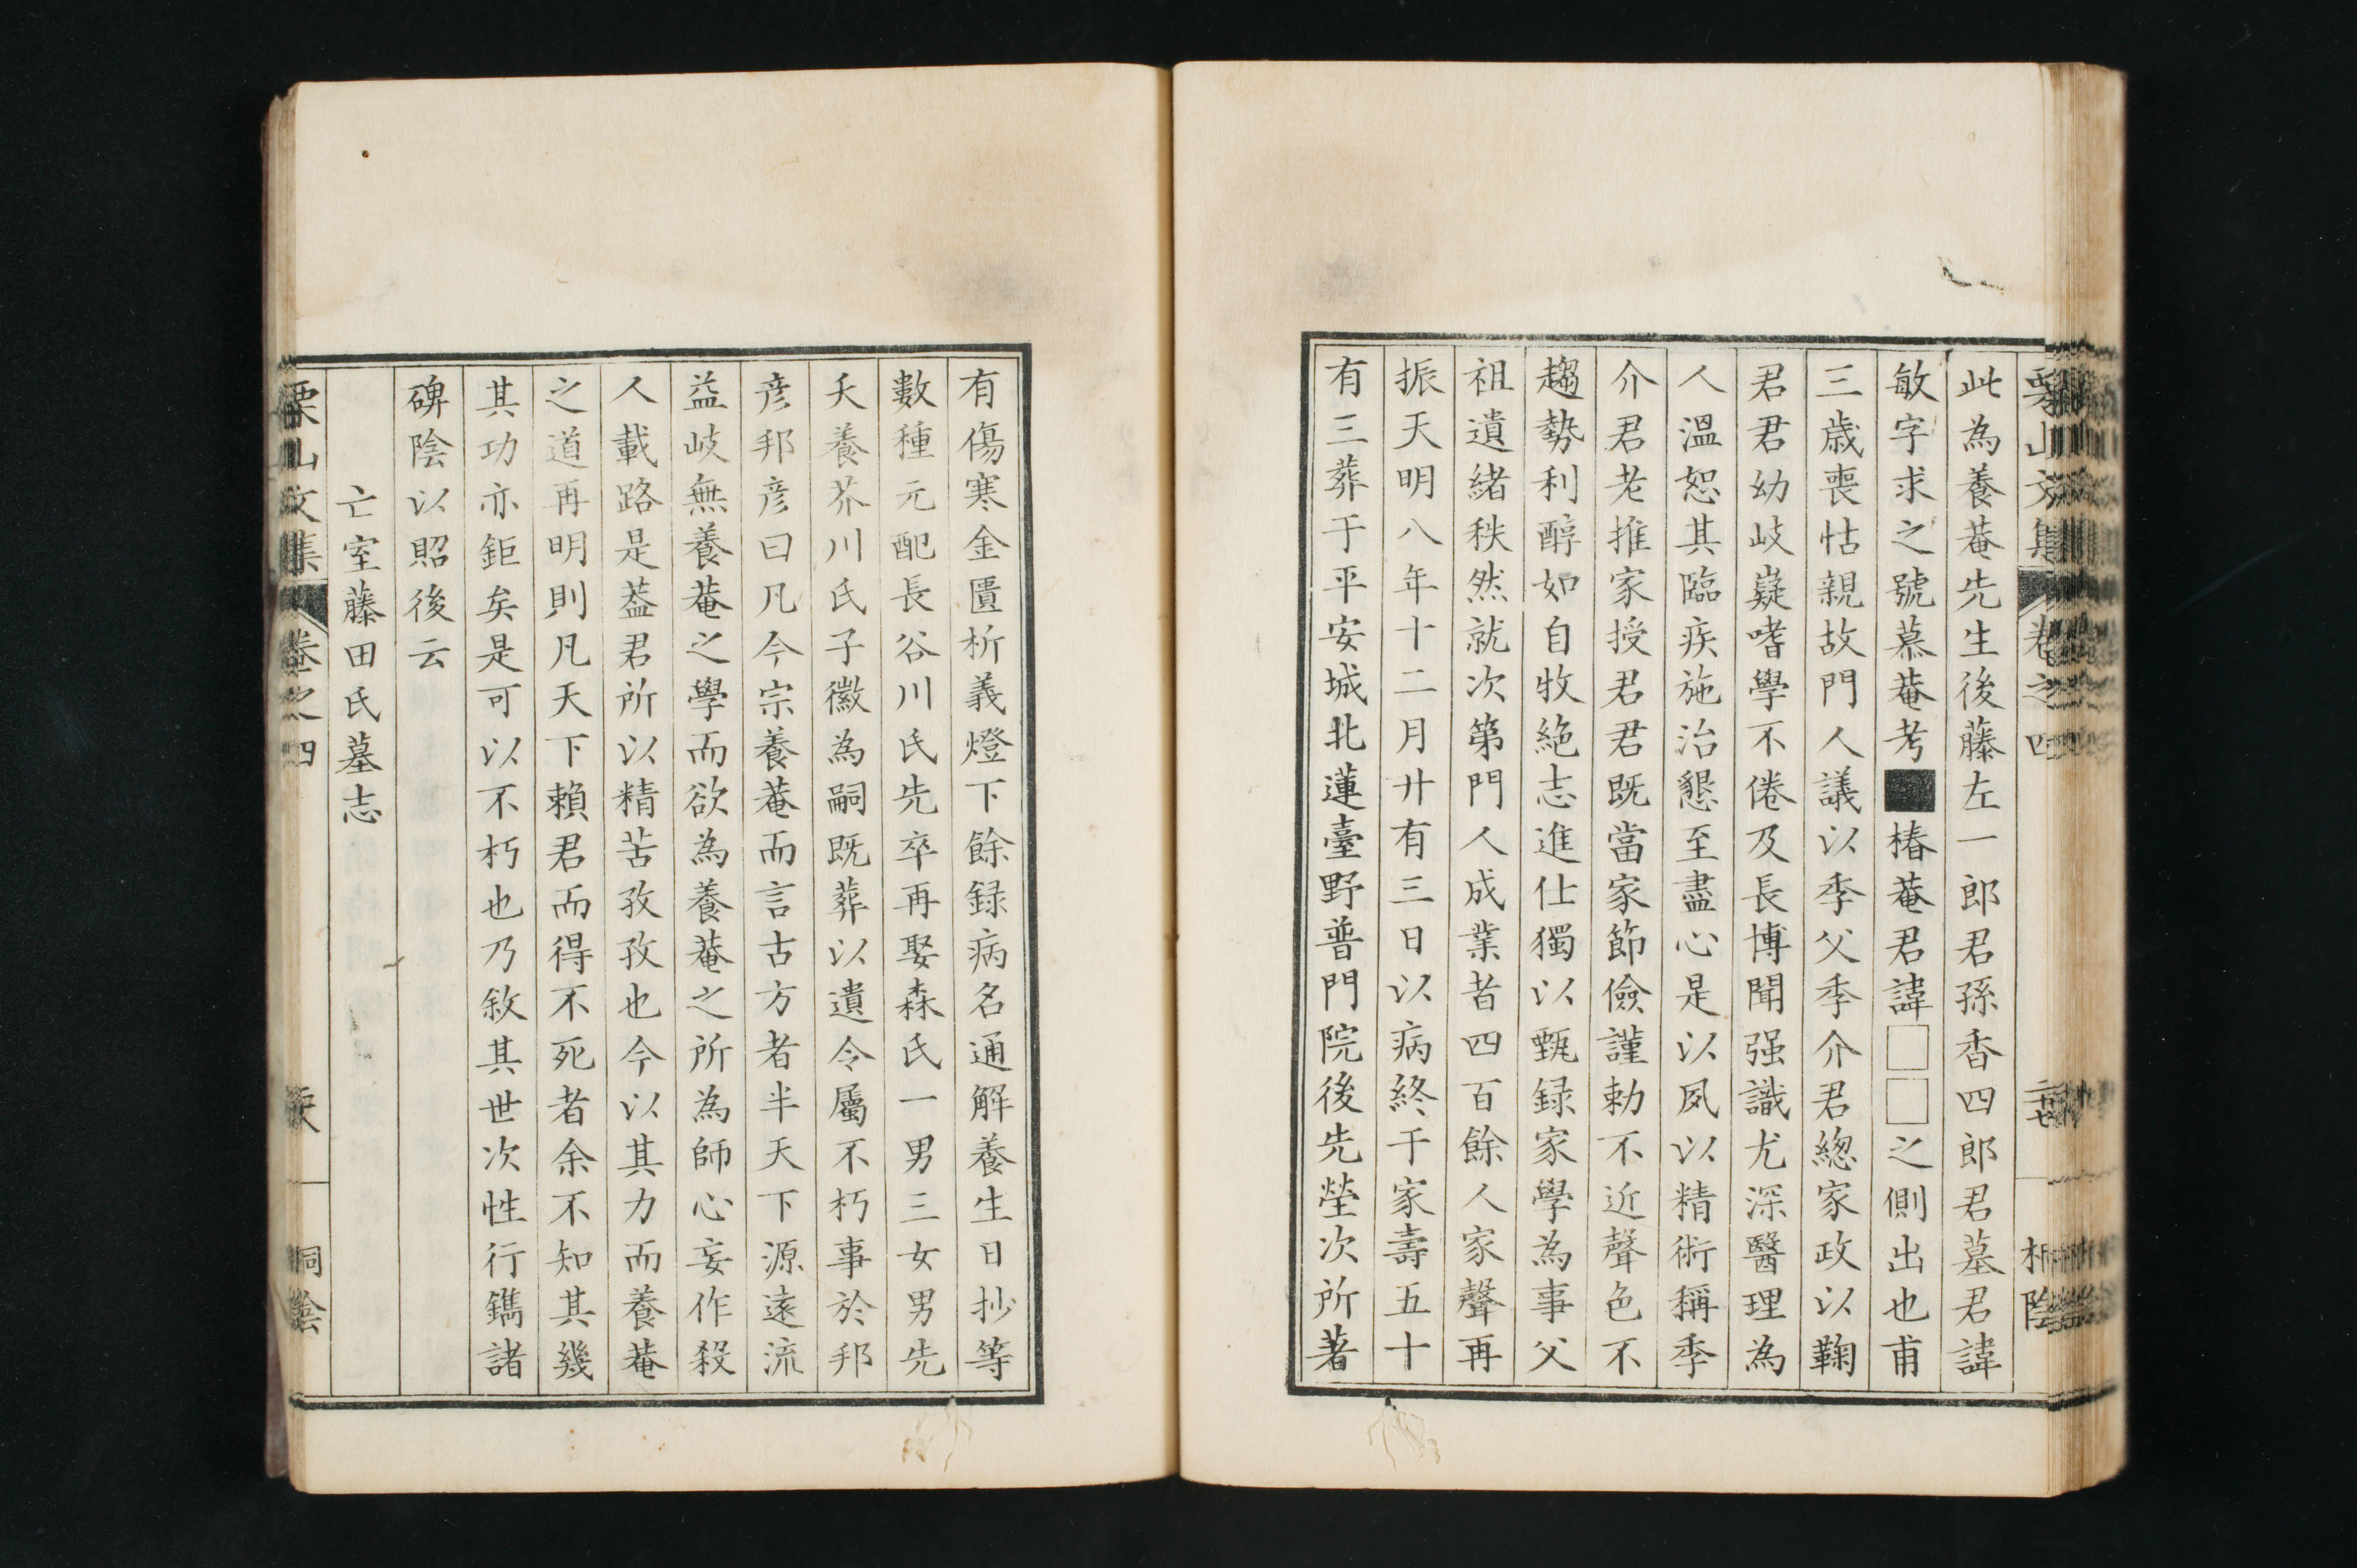 此為養菴先生後藤左一郎君孫香四郎君墓君諱
敏字求之號慕菴考■椿菴君諱□□之側出也甫
三歲喪怙親故門人議以季父季介君緫家政以鞠
君君幼岐嶷嗜學不倦及長博聞强識尤深醫理為
人溫恕其臨疾施治懇至盡心是以夙以精術稱季
介君老推家授君君既當家節儉謹勅不近聲色不
趨勢利醇如自牧絕志進仕獨以甄録家學為事父
祖遺緒秩然就次第門人成業者四百餘人家聲再
振天明八年十二月廿有三日以病終于家壽五十
有三葬于平安城北蓮臺野普門院後先塋次所著
有傷寒金匱析義燈下餘録病名通解養生日抄等
數種元配長谷川氏先卒再娶森氏一男三女男先
夭養芥川氏子徽為嗣既葬以遺令屬不朽事於邦
彦邦彦曰凡今宗養菴而言古方者半天下源遠流
益岐無養菴之學而欲為養菴之所為師心妄作殺
人載路是葢君所以精苦孜孜也今以其力而養菴
之道再明則凡天下賴君而得不死者余不知其幾
其功亦鉅矣是可以不朽也乃敘其世次性行鐫諸
碑陰以照後云
亡室藤田氏墓志
栗山文集 卷之四